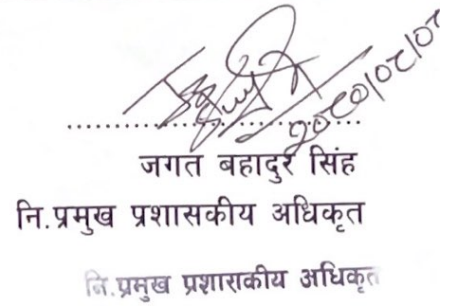 जगत बहादुर सिंह
नि.प्रमुख प्रशासकीय अधिकृत
नि.प्रमुख प्रशासकीय अधिकृत